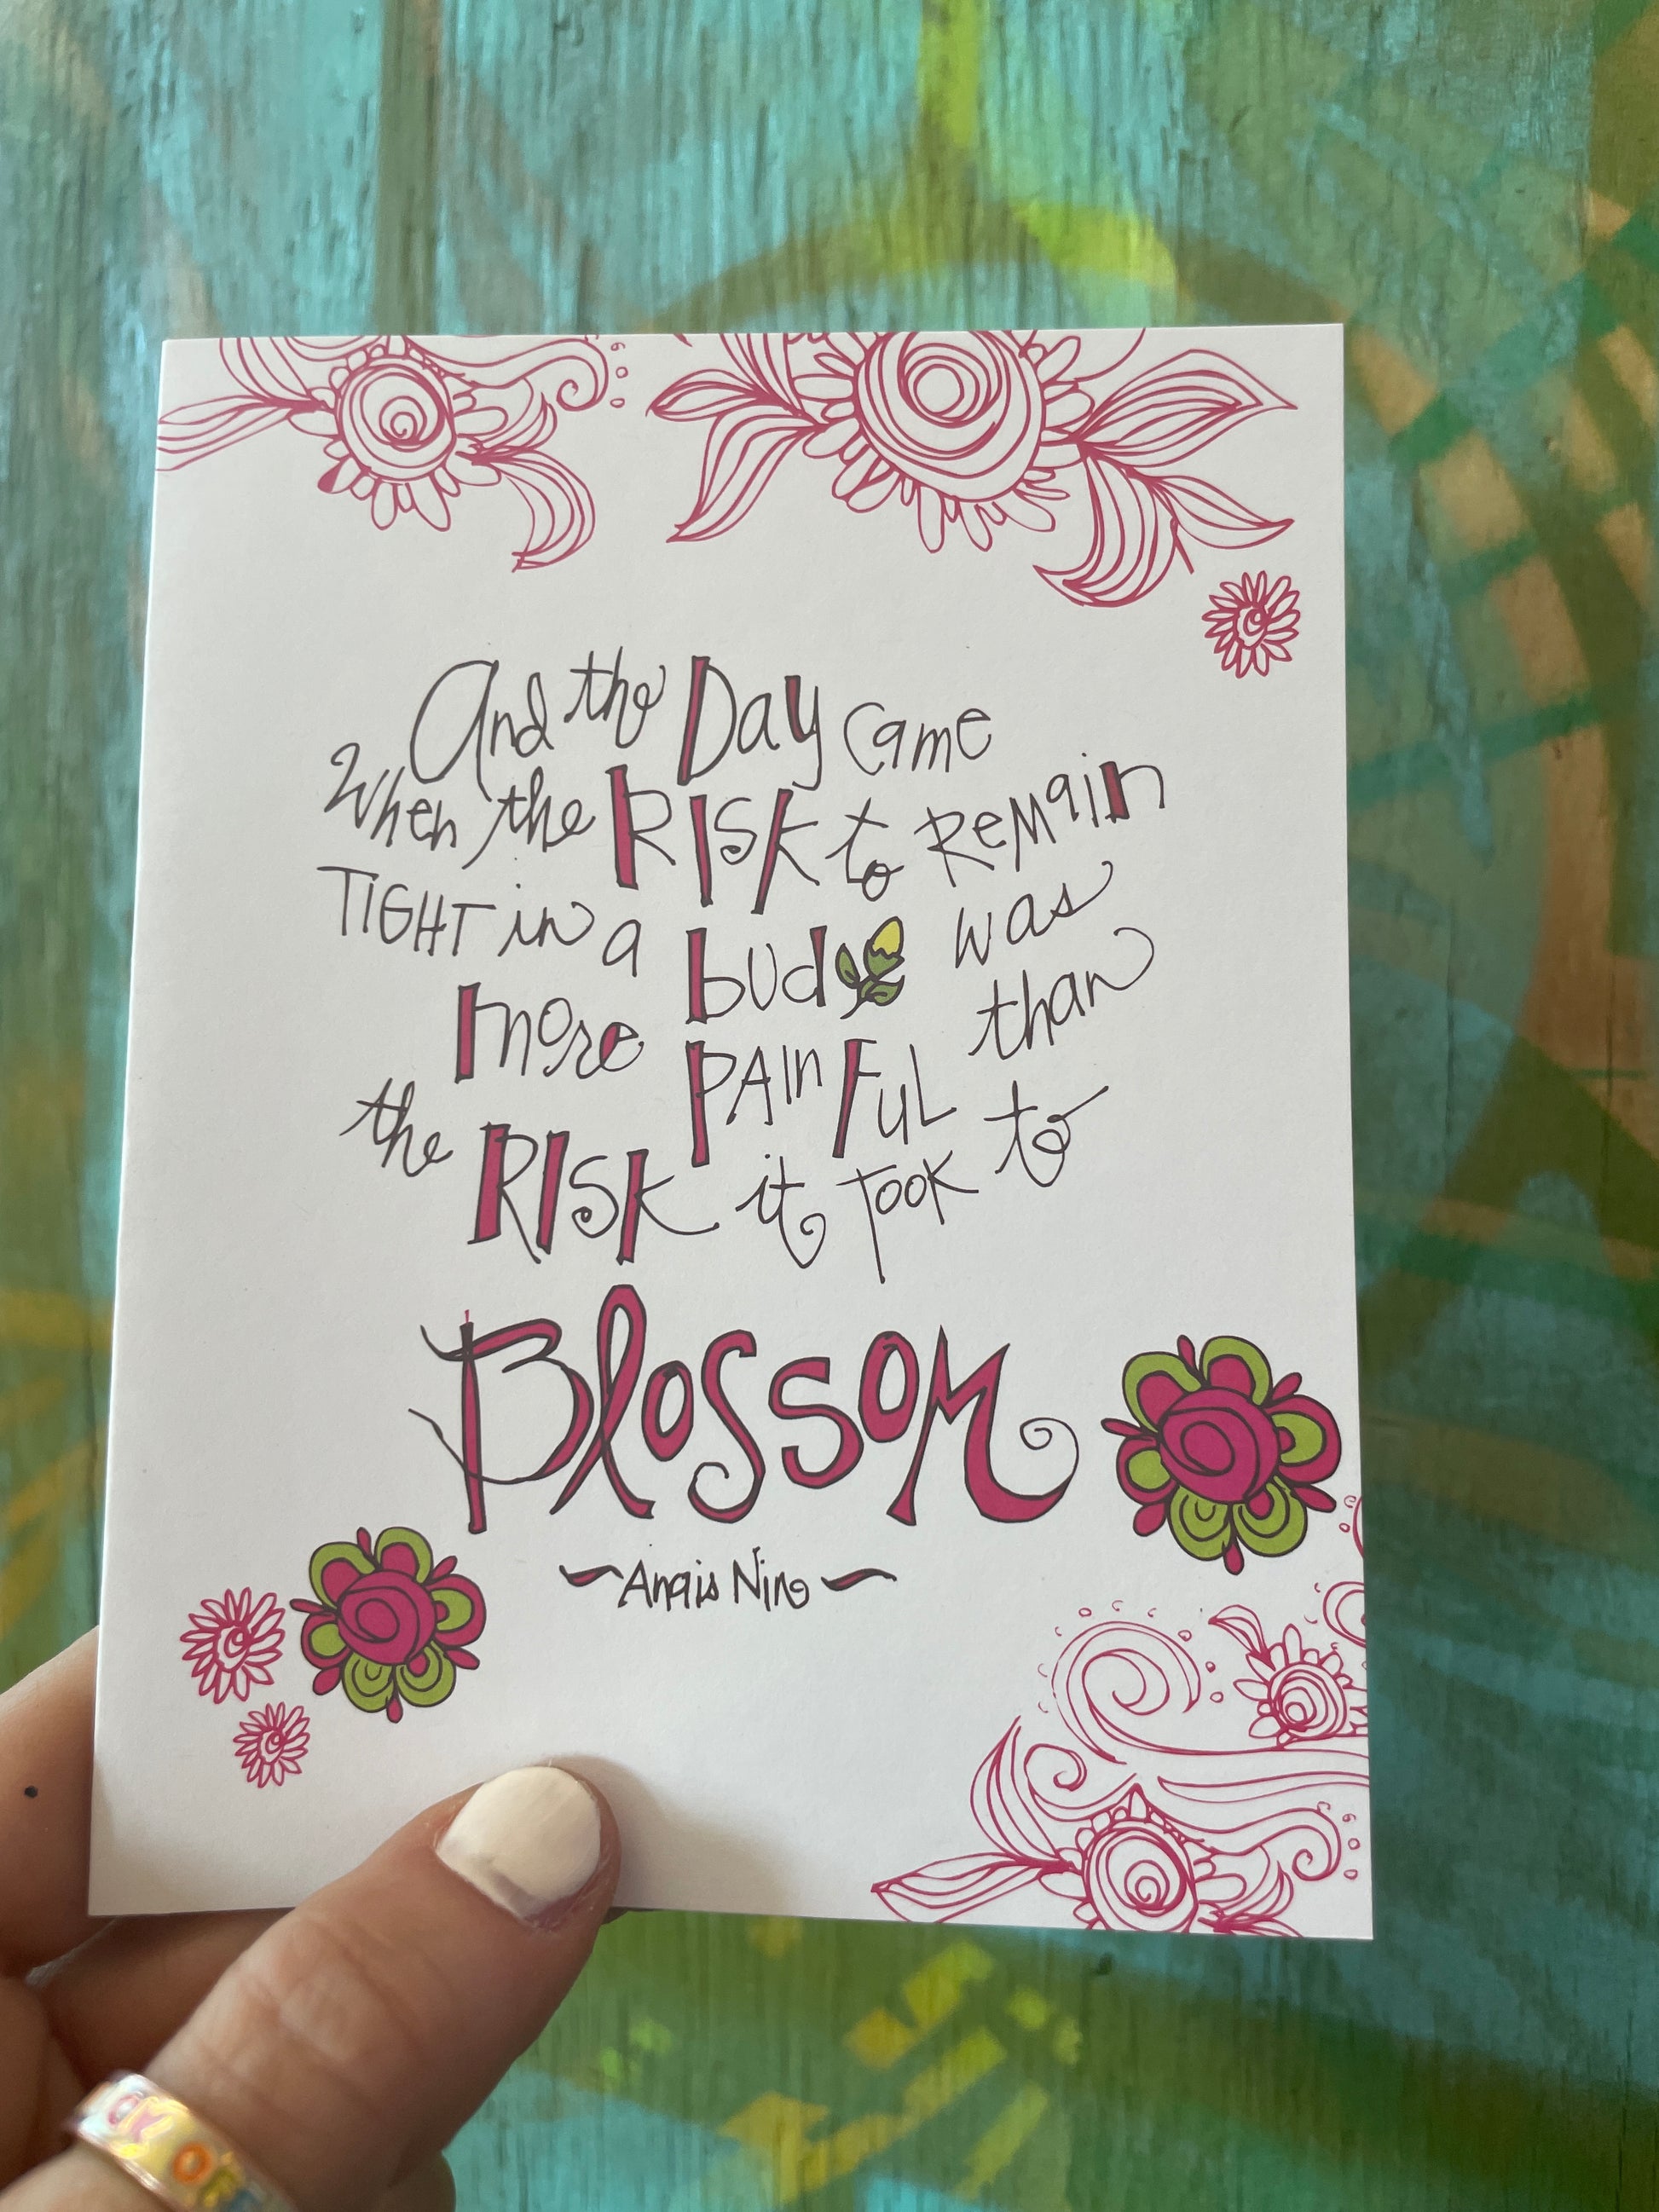 And the Day came
When the RISK to Remain
TIGHT in a bud was
more PAINFUL than
the RISK it TOOK to
Blossom
~Anais Nin~